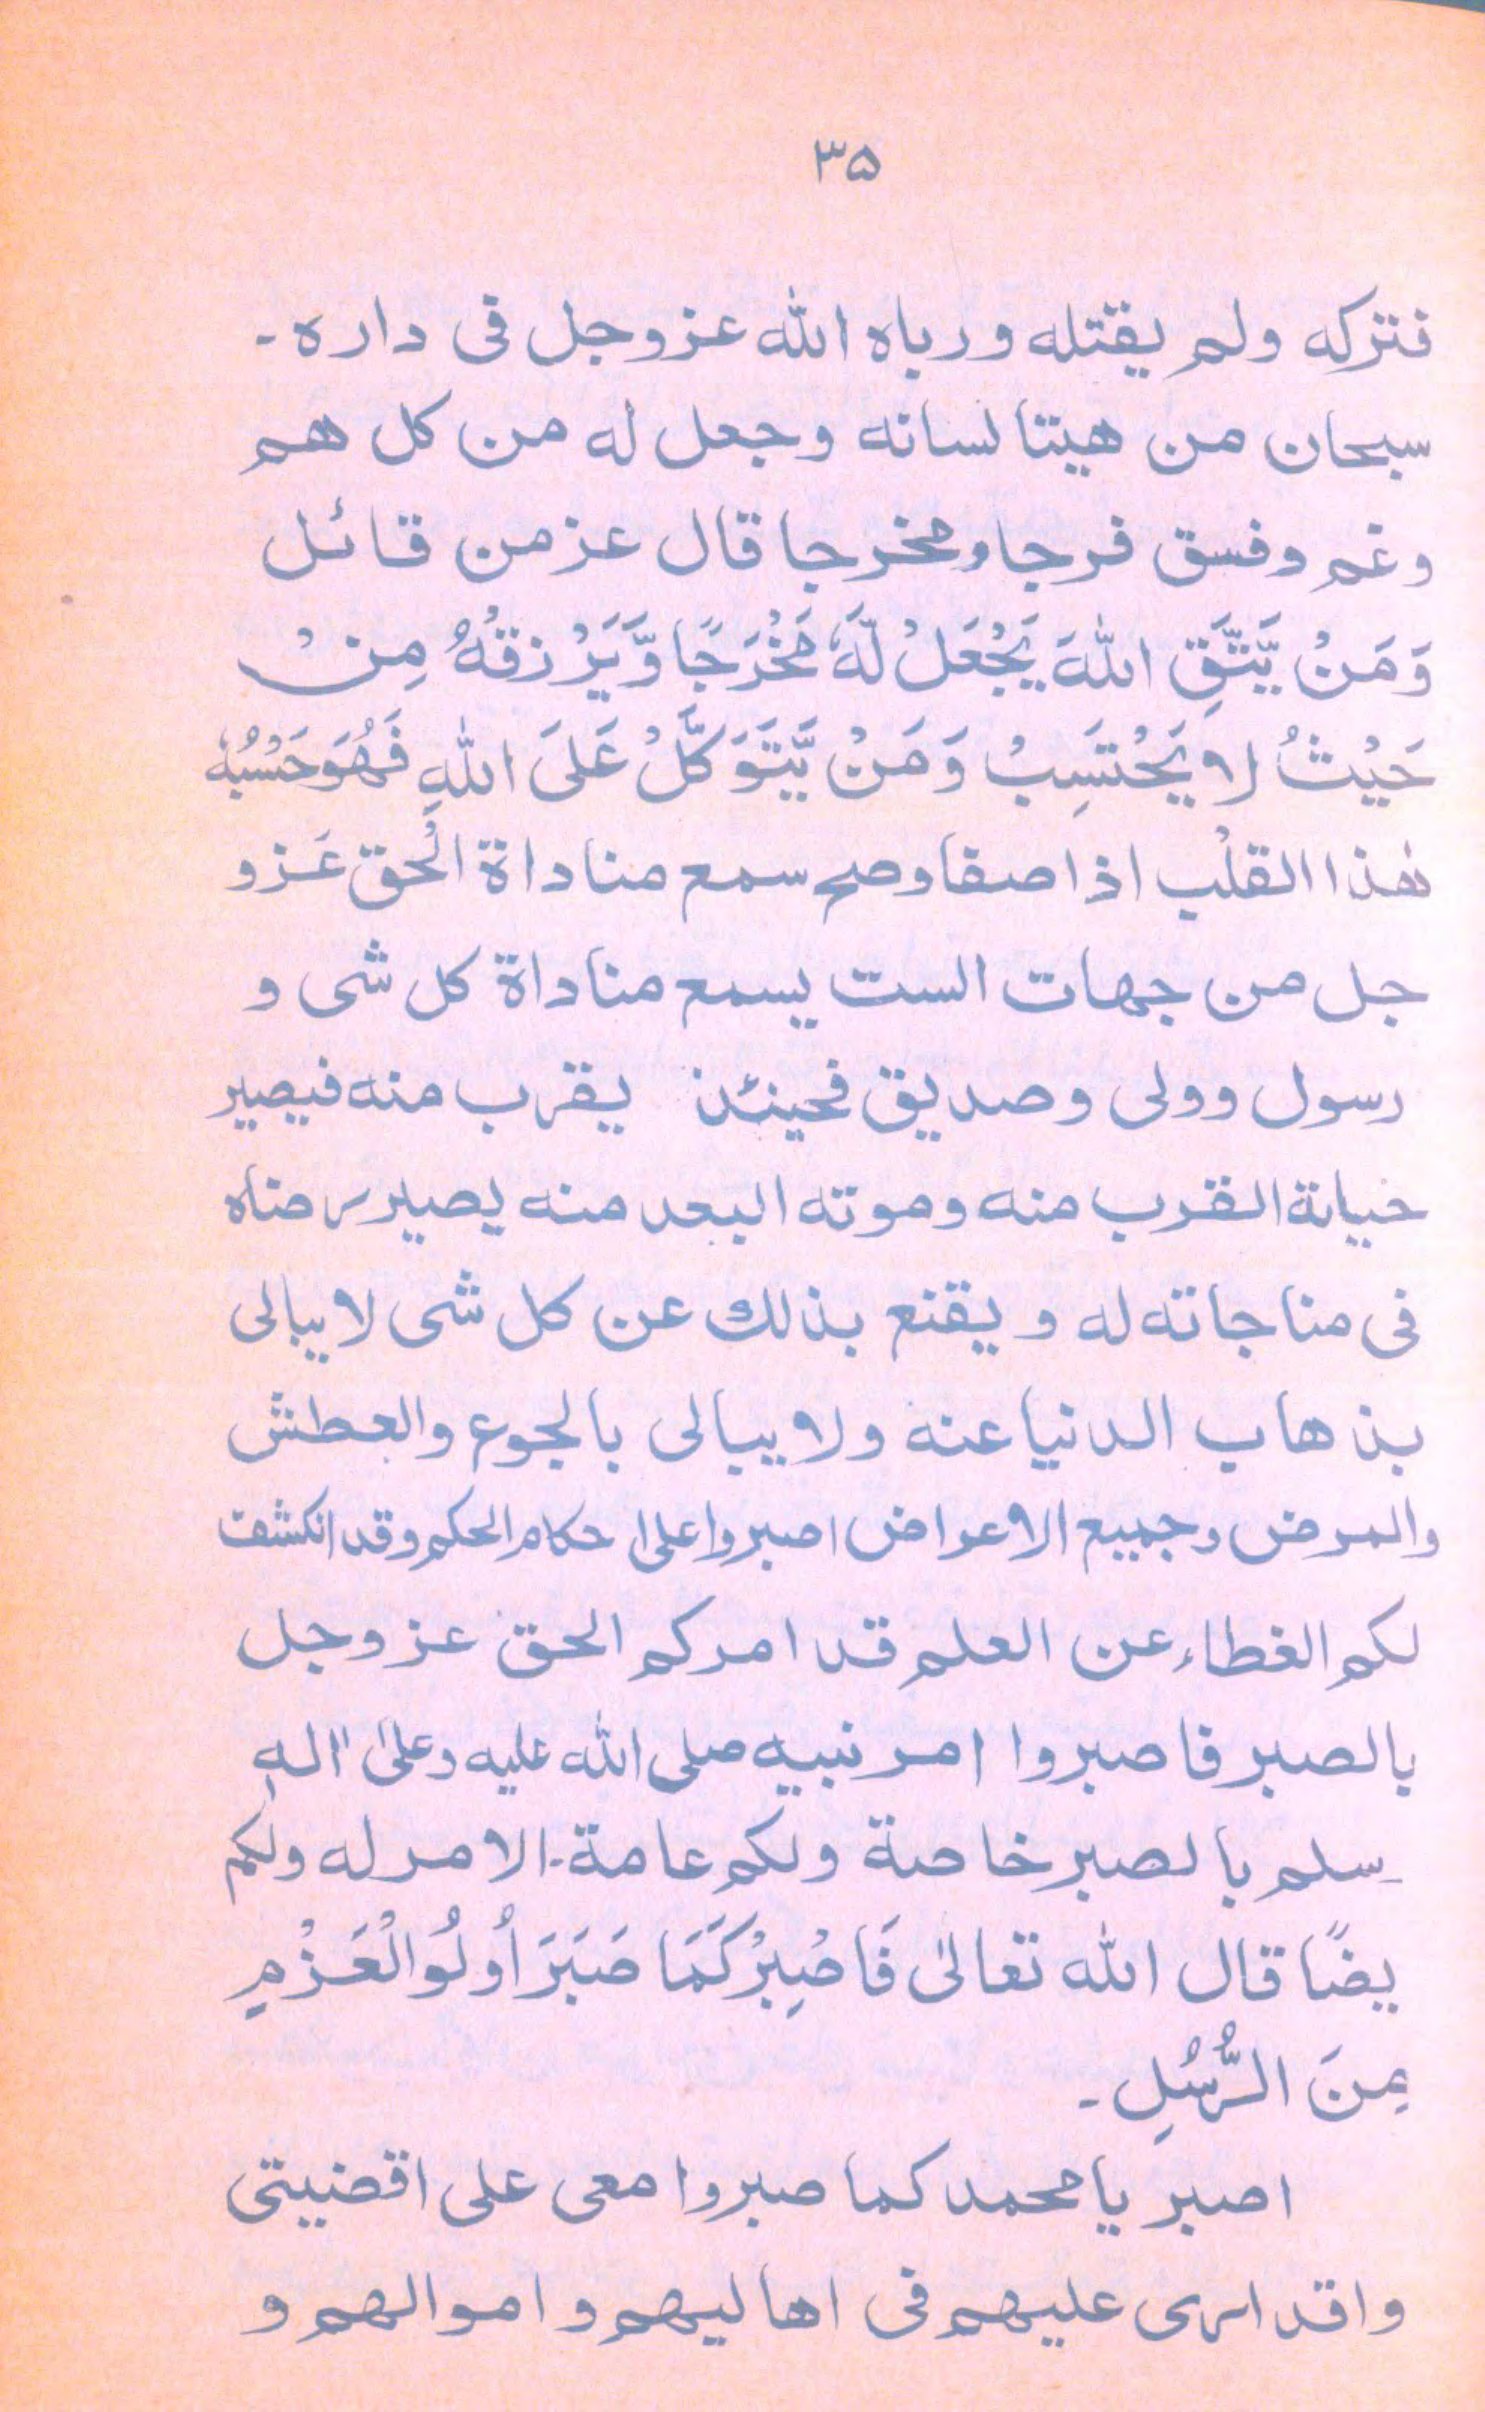 ۳۵
فتركه ولم يقتله ورباه الله عزوجل فى داره۔
سبحان من هيتا لسانه وجعل له من كل هم
وغم وفسق فرجا ومخرجا قال عز من قائل
وَمَنْ يَّتَّقِ اللهَ يَجْعَلْ لَّهٗ مَخْرَجًا وَّيَرْزُقْهُ مِنْ
حَيْثُ لا يَحْتَسِبُ وَمَنْ يَّتَوَكَّلْ عَلَى اللهِ فَهُوَ حَسْبُهٗ
هٰذا القلْب اذا صفا وصح سمع مناداة الْحق عَزو
جل من جهات الست يسمع مناداة كل شى و
رسول وولى وصديق فحينئذ يقرب منه فيصير
حياته القرب منه وموته البعد منه يصير رضاه
فى مناجاته له ويقنع بذلك عن كل شى لا يبالى
بذهاب الدنيا عنه ولا يبالى بالجوع والعطش
والمرض وجميع الاعراض اصبروا على احكام الحكم وقد انكشف
لكم الغطاء عن العلم قد امركم الحق عزوجل
بالصبر فاصبروا امر نبيه صلى الله عليه وعلىٰ اٰله
سلم بالصبر خاصة ولكم عامة۔ الامر له ولكم
يضًا قال الله تعالىٰ فَاصْبِرْ كَمَا صَبَرَ أُولُوا الْعَزْمِ
مِنَ الرُّسُلِ۔
اصبر يا محمد كما صبروا معى على اقضيتى
واقدارى عليهم فى اهاليهم واموالهم و